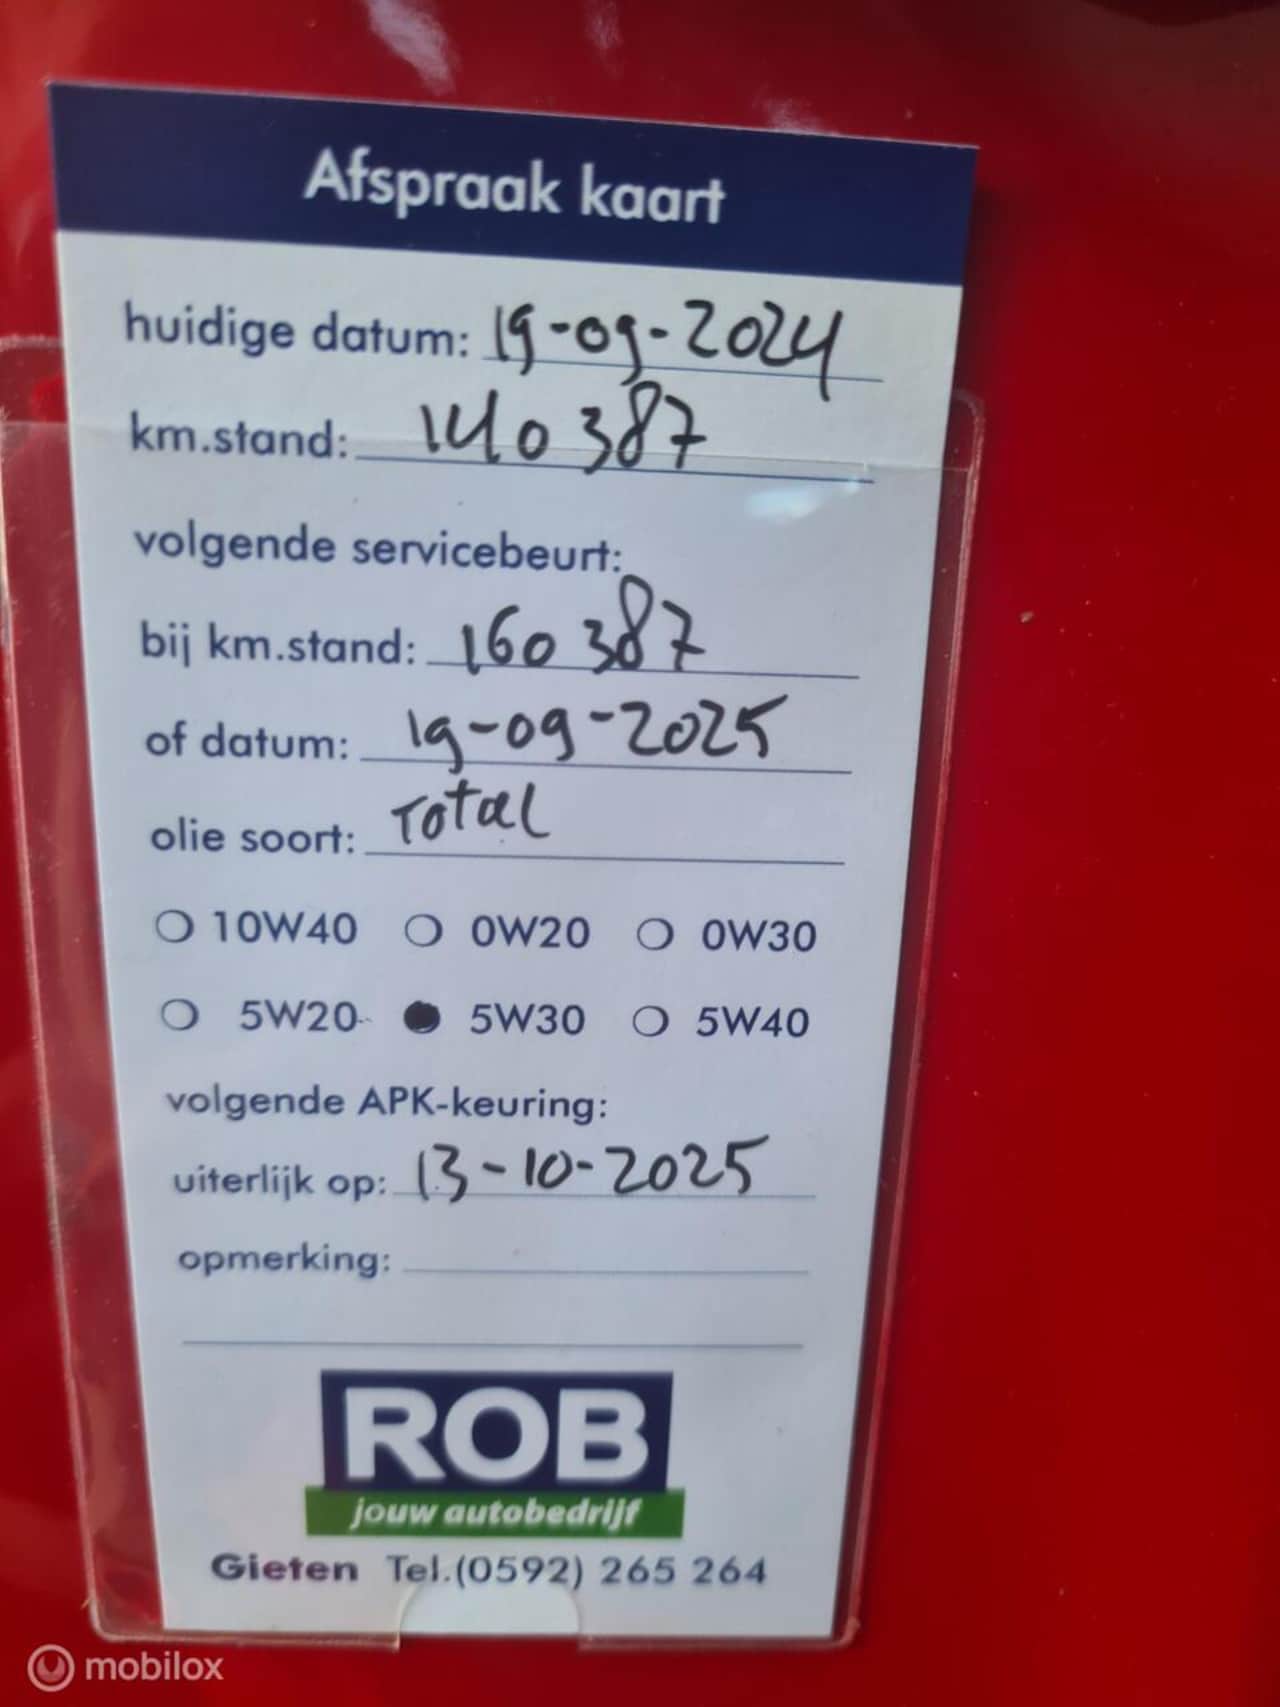 Afspraak kaart
huidige datum: 19-09-2024
km.stand: 140 387
volgende servicebeurt:
bij km.stand: 160 387
of datum: 19-09-2025
olie soort: Total
10W40 0W20 0W30
5W20 5W30 5W40
volgende APK-keuring:
uiterlijk op: 13-10-2025
opmerking:
ROB
jouw autobedrijf
Gieten Tel.(0592) 265 264
mobilox